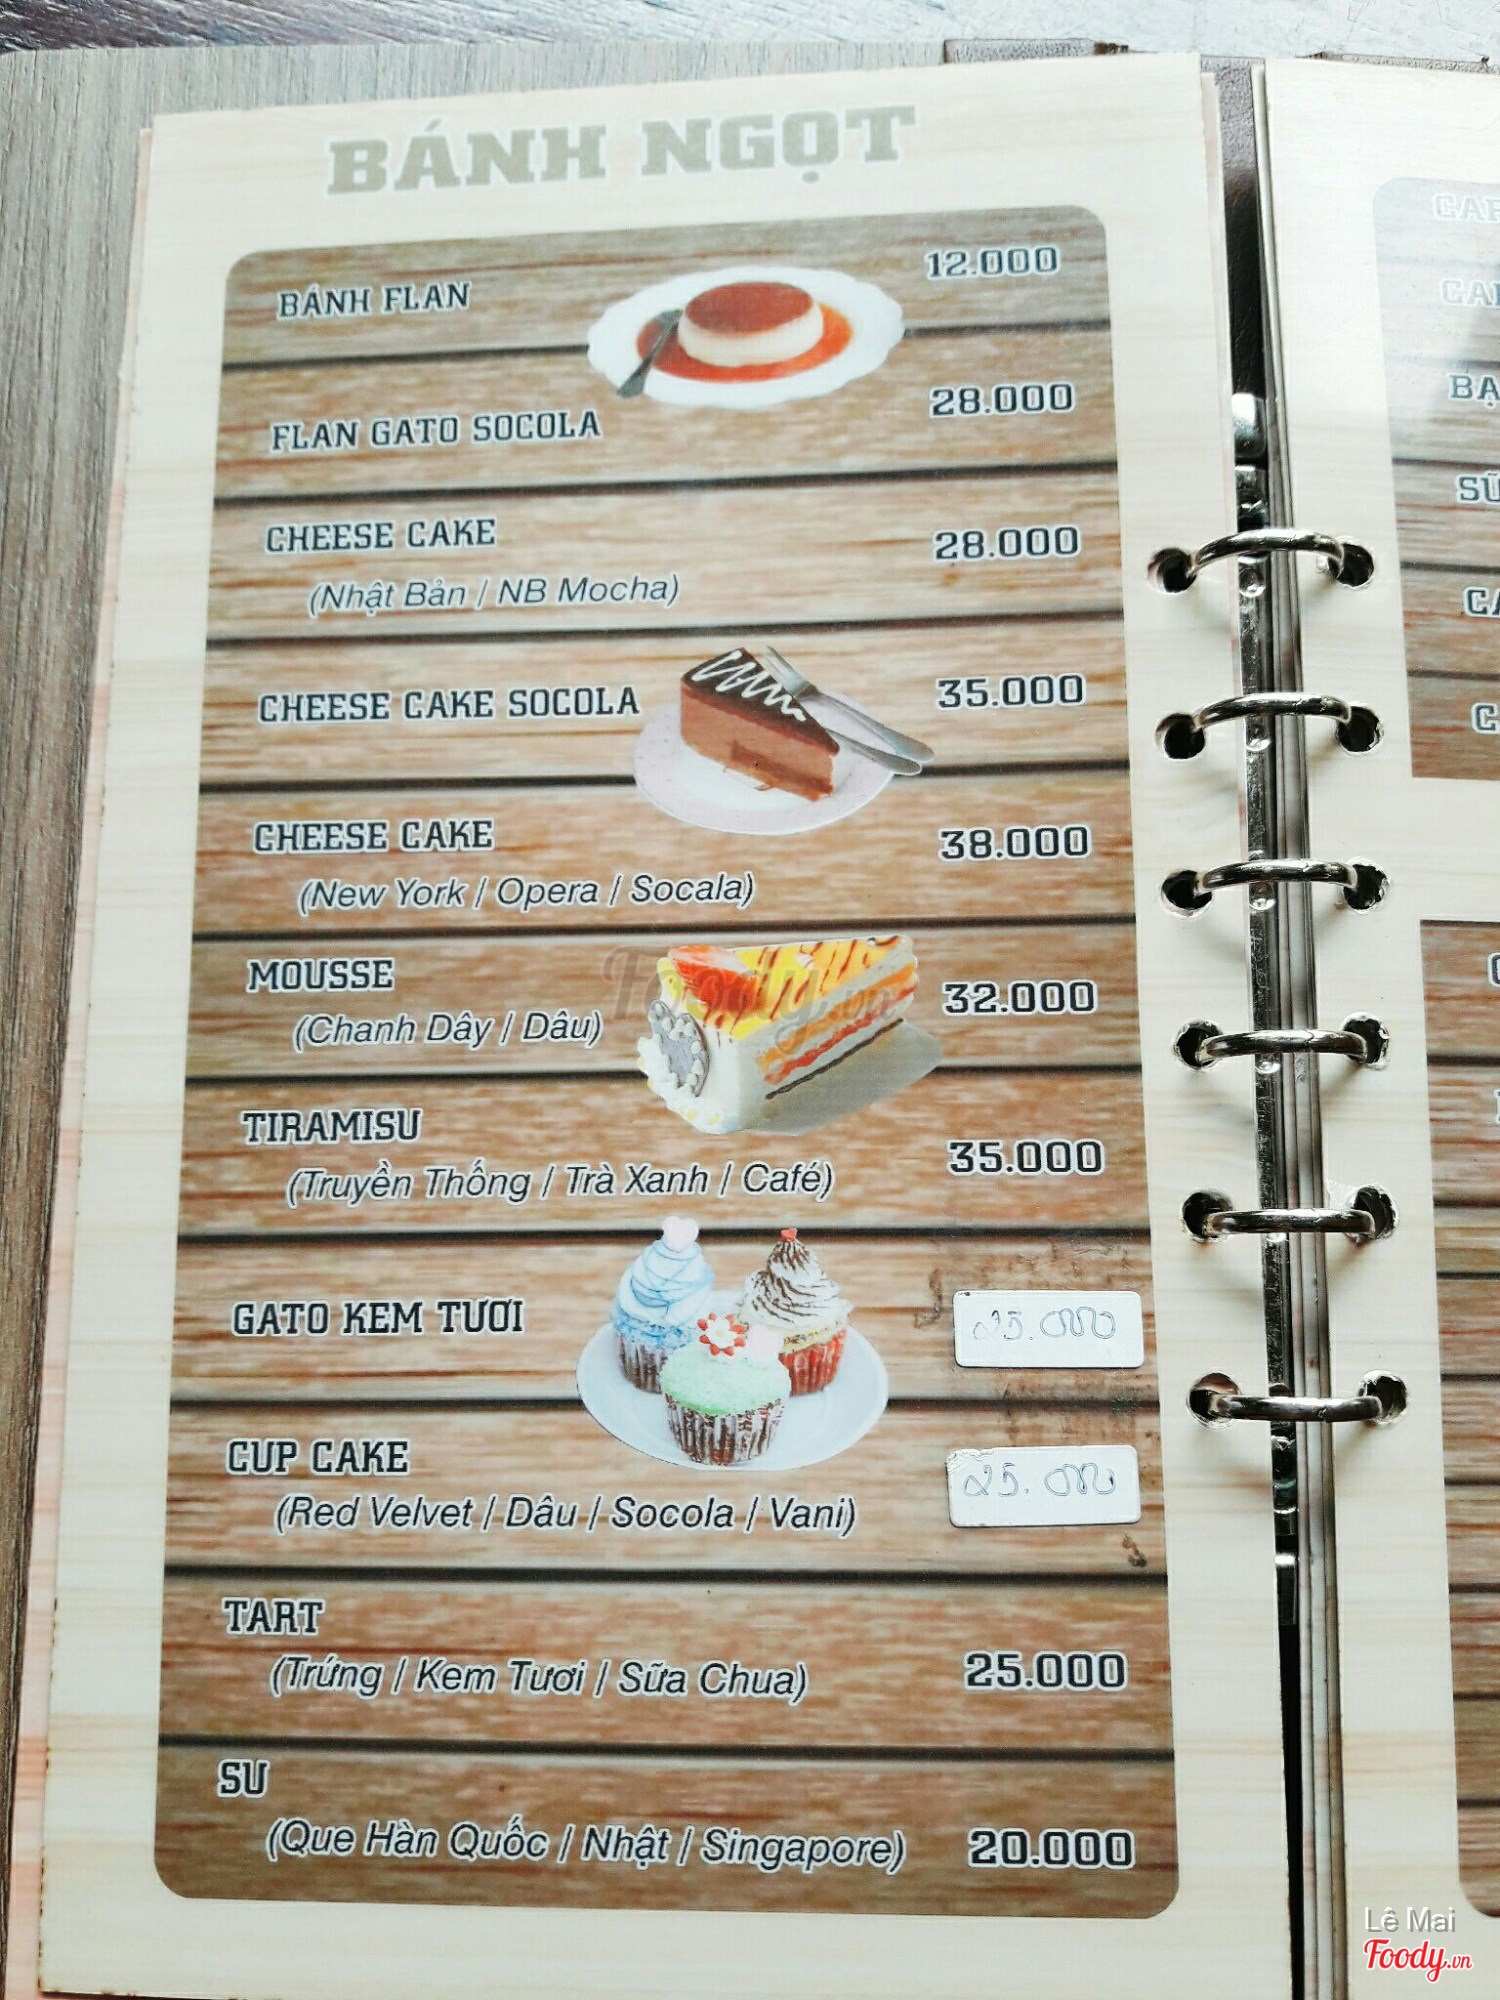 BÁNH NGỌT
BÁNH FLAN 12.000
FLAN GATO SOCOLA 28.000
CHEESE CAKE 28.000
(Nhật Bản / NB Mocha)
CHEESE CAKE SOCOLA 35.000
CHEESE CAKE 38.000
(New York / Opera / Socala)
Foody.vn
MOUSSE 32.000
(Chanh Dây / Dâu)
TIRAMISU 35.000
(Truyền Thống / Trà Xanh / Café)
GATO KEM TƯƠI 25.000
CUP CAKE 25.000
(Red Velvet / Dâu / Socola / Vani)
TART
(Trứng / Kem Tươi / Sữa Chua) 25.000
SU
(Que Hàn Quốc / Nhật / Singapore) 20.000
Lê Mai
Foody.vn